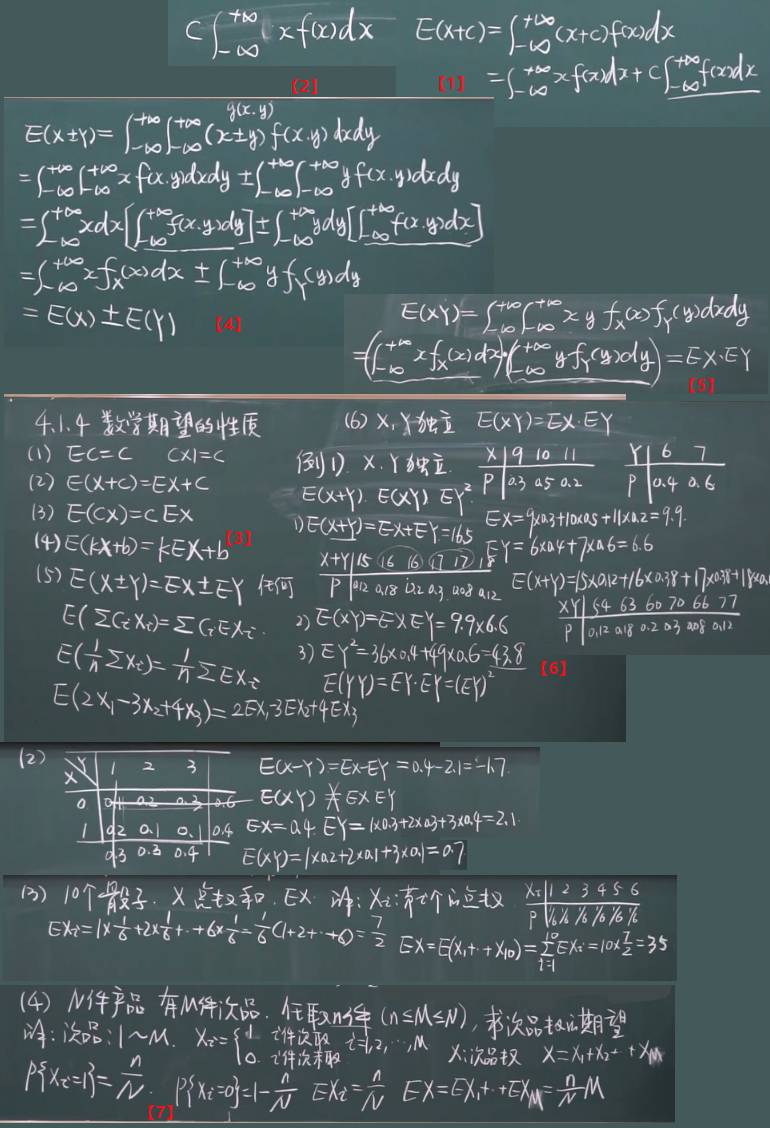 C∫_{-∞}^{+∞} x f(x)dx
【2】
E(X+C)=∫_{-∞}^{+∞}(x+c)f(x)dx
=∫_{-∞}^{+∞}xf(x)dx+C∫_{-∞}^{+∞}f(x)dx
【1】
g(x.y)
E(X±Y)=∫_{-∞}^{+∞}∫_{-∞}^{+∞}(x±y)f(x.y)dxdy
=∫_{-∞}^{+∞}∫_{-∞}^{+∞}x f(x.y)dxdy ±∫_{-∞}^{+∞}∫_{-∞}^{+∞}y f(x.y)dxdy
=∫_{-∞}^{+∞}xdx[∫_{-∞}^{+∞}f(x.y)dy]±∫_{-∞}^{+∞}ydy[∫_{-∞}^{+∞}f(x.y)dx]
=∫_{-∞}^{+∞}xf_X(x)dx ±∫_{-∞}^{+∞}y f_Y(y)dy
=E(X)±E(Y)
【4】
E(XY)=∫_{-∞}^{+∞}∫_{-∞}^{+∞}x y f_X(x)f_Y(y)dxdy
=(∫_{-∞}^{+∞}xf_X(x)dx)·(∫_{-∞}^{+∞}yf_Y(y)dy)=EX·EY
【5】
4.1.4 数学期望的性质
(1) EC=C C×1=C
(2) E(X+C)=EX+C
(3) E(CX)=CEX
【3】
(4) E(kX+b)=kEX+b
(5) E(X±Y)=EX±EY 任何
E(ΣCiXi)=ΣCiEXi.
E(1/nΣXi)=1/nΣEXi
E(2X1-3X2+4X3)=2EX1-3EX2+4EX3
(6) X,Y独立 E(XY)=EX·EY
例1). X.Y独立.
X 9 10 11
P 0.3 0.5 0.2
Y 6 7
P 0.4 0.6
E(X+Y). E(XY) EY²
1) E(X+Y)=EX+EY=16.5
EX=9×0.3+10×0.5+11×0.2=9.9.
EY=6×0.4+7×0.6=6.6
X+Y 15 16 16 17 17 18
P 0.12 0.18 0.2 0.3 0.08 0.12
E(X+Y)=15×0.12+16×0.38+17×0.38+18×0.1
2) E(XY)=EXEY=9.9×6.6
XY 54 63 60 70 66 77
P 0.12 0.18 0.2 0.3 0.08 0.12
3) EY²=36×0.4+49×0.6=43.8
【6】
E(YY)=EY·EY=(EY)²
(2)
X Y 1 2 3
0 0.1 0.2 0.3 0.6
1 0.2 0.1 0.1 0.4
0.3 0.3 0.4
E(X-Y)=EX-EY=0.4-2.1=-1.7.
E(XY) ≠ EXEY
EX=0.4. EY=1×0.3+2×0.3+3×0.4=2.1.
E(XY)=1×0.2+2×0.1+3×0.1=0.7
(3) 10个骰子. X点数和. EX. 解:Xi:第i个的点数
Xi 1 2 3 4 5 6
P 1/6 1/6 1/6 1/6 1/6 1/6
EXi=1×1/6+2×1/6+··+6×1/6=1/6(1+2+··+6)=7/2
EX=E(X1+··+X10)=Σ_{i=1}^{10}EXi=10×7/2=35
(4) N件产品 有M件次品. 任取n件(n≤M≤N),求次品数的期望
解:次品:1~M. Xi={1 i件次取 i=1,2,···,M
0. i件次未取
X:次品数 X=X1+X2+··+XM
P{Xi=1}=n/N. P{Xi=0}=1-n/N EXi=n/N EX=EX1+··+EXM=n/N M
【7】